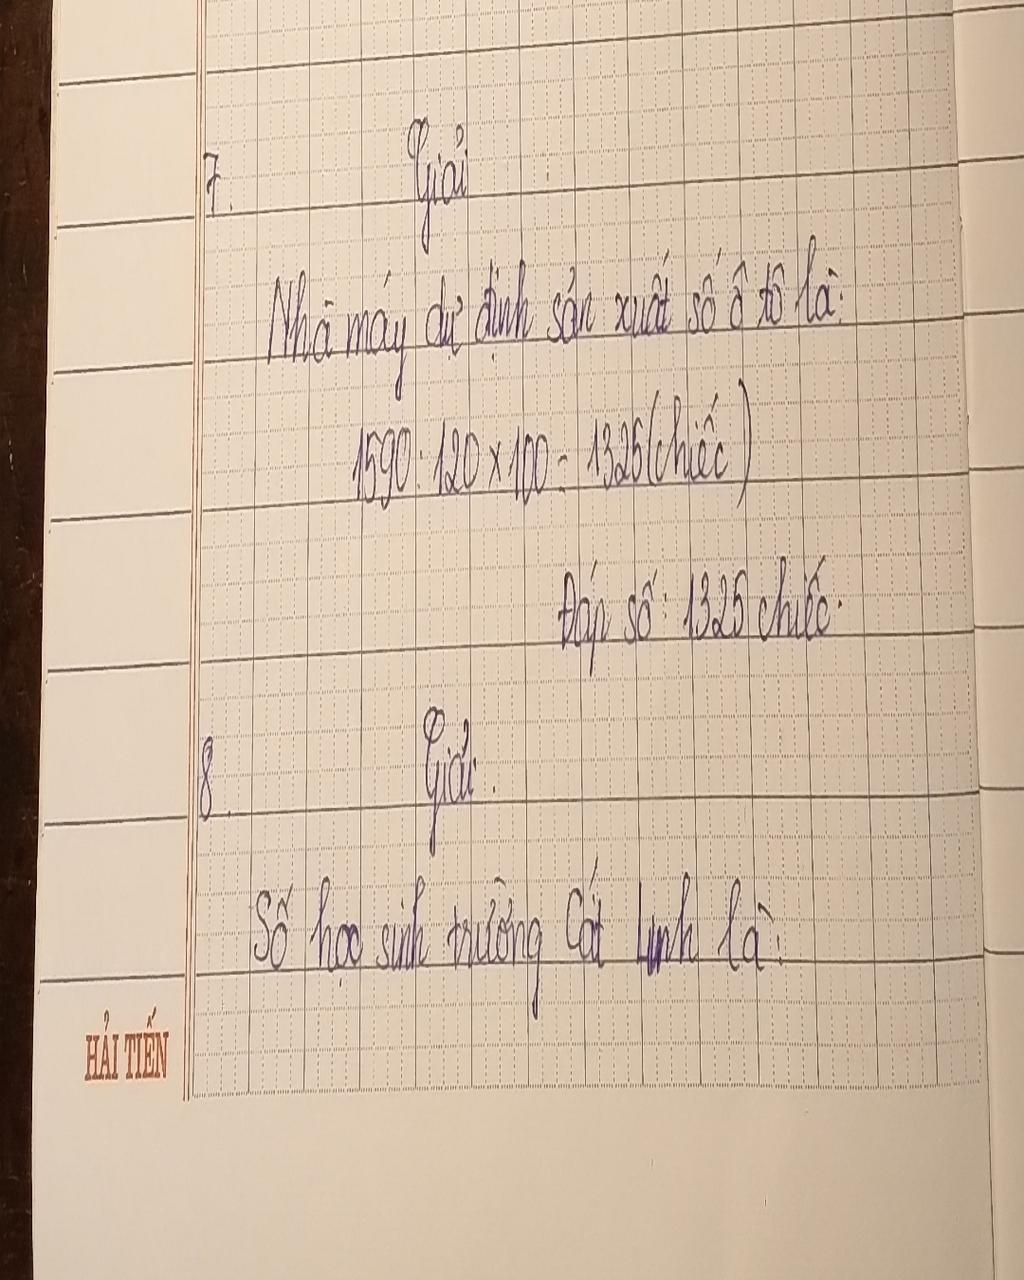 7. Giải
Nhà máy dự định sản xuất số ô tô là:
1590 : 120 x 100 = 1325 (chiếc)
Đáp số: 1325 chiếc.
8. Giải.
Số học sinh trường Cát Linh là:
HẢI TIẾN